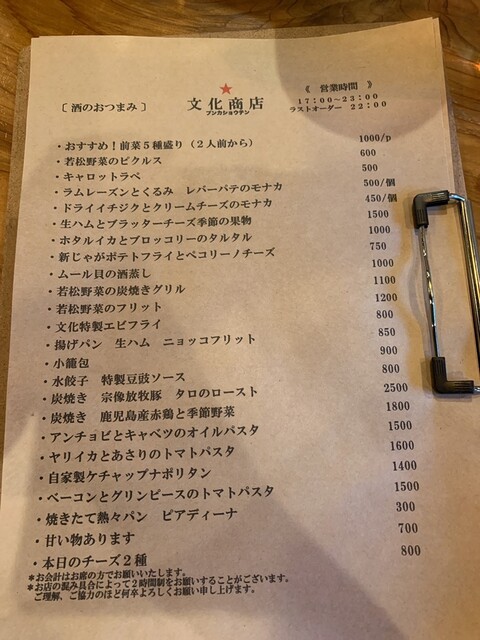 ［酒のおつまみ］
★
文化商店
ブンカショウテン
《 営業時間 》
17：00～23：00
ラストオーダー 22：00
・おすすめ！前菜５種盛り（２人前から） 1000/p
・若松野菜のピクルス 600
・キャロットラペ 500
・ラムレーズンとくるみ　レバーパテのモナカ 500/個
・ドライイチジクとクリームチーズのモナカ 450/個
・生ハムとブラッターチーズ季節の果物 1500
・ホタルイカとブロッコリーのタルタル 1000
・新じゃがポテトフライとペコリーノチーズ 750
・ムール貝の酒蒸し 1000
・若松野菜の炭焼きグリル 1100
・若松野菜のフリット 1200
・文化特製エビフライ 800
・揚げパン　生ハム　ニョッコフリット 850
・小籠包 900
・水餃子　特製豆豉ソース 800
・炭焼き　宗像放牧豚　タロのロースト 2500
・炭焼き　鹿児島産赤鶏と季節野菜 1800
・アンチョビとキャベツのオイルパスタ 1500
・ヤリイカとあさりのトマトパスタ 1600
・自家製ケチャップナポリタン 1400
・ベーコンとグリンピースのトマトパスタ 1500
・焼きたて熱々パン　ピアディーナ 300
・甘い物あります 700
・本日のチーズ２種 800
＊お会計はお席の方でお願いいたします。
＊お店の混み具合によって２時間制をお願いすることがございます。
ご理解、ご協力のほど何卒よろしくお願い申し上げます。